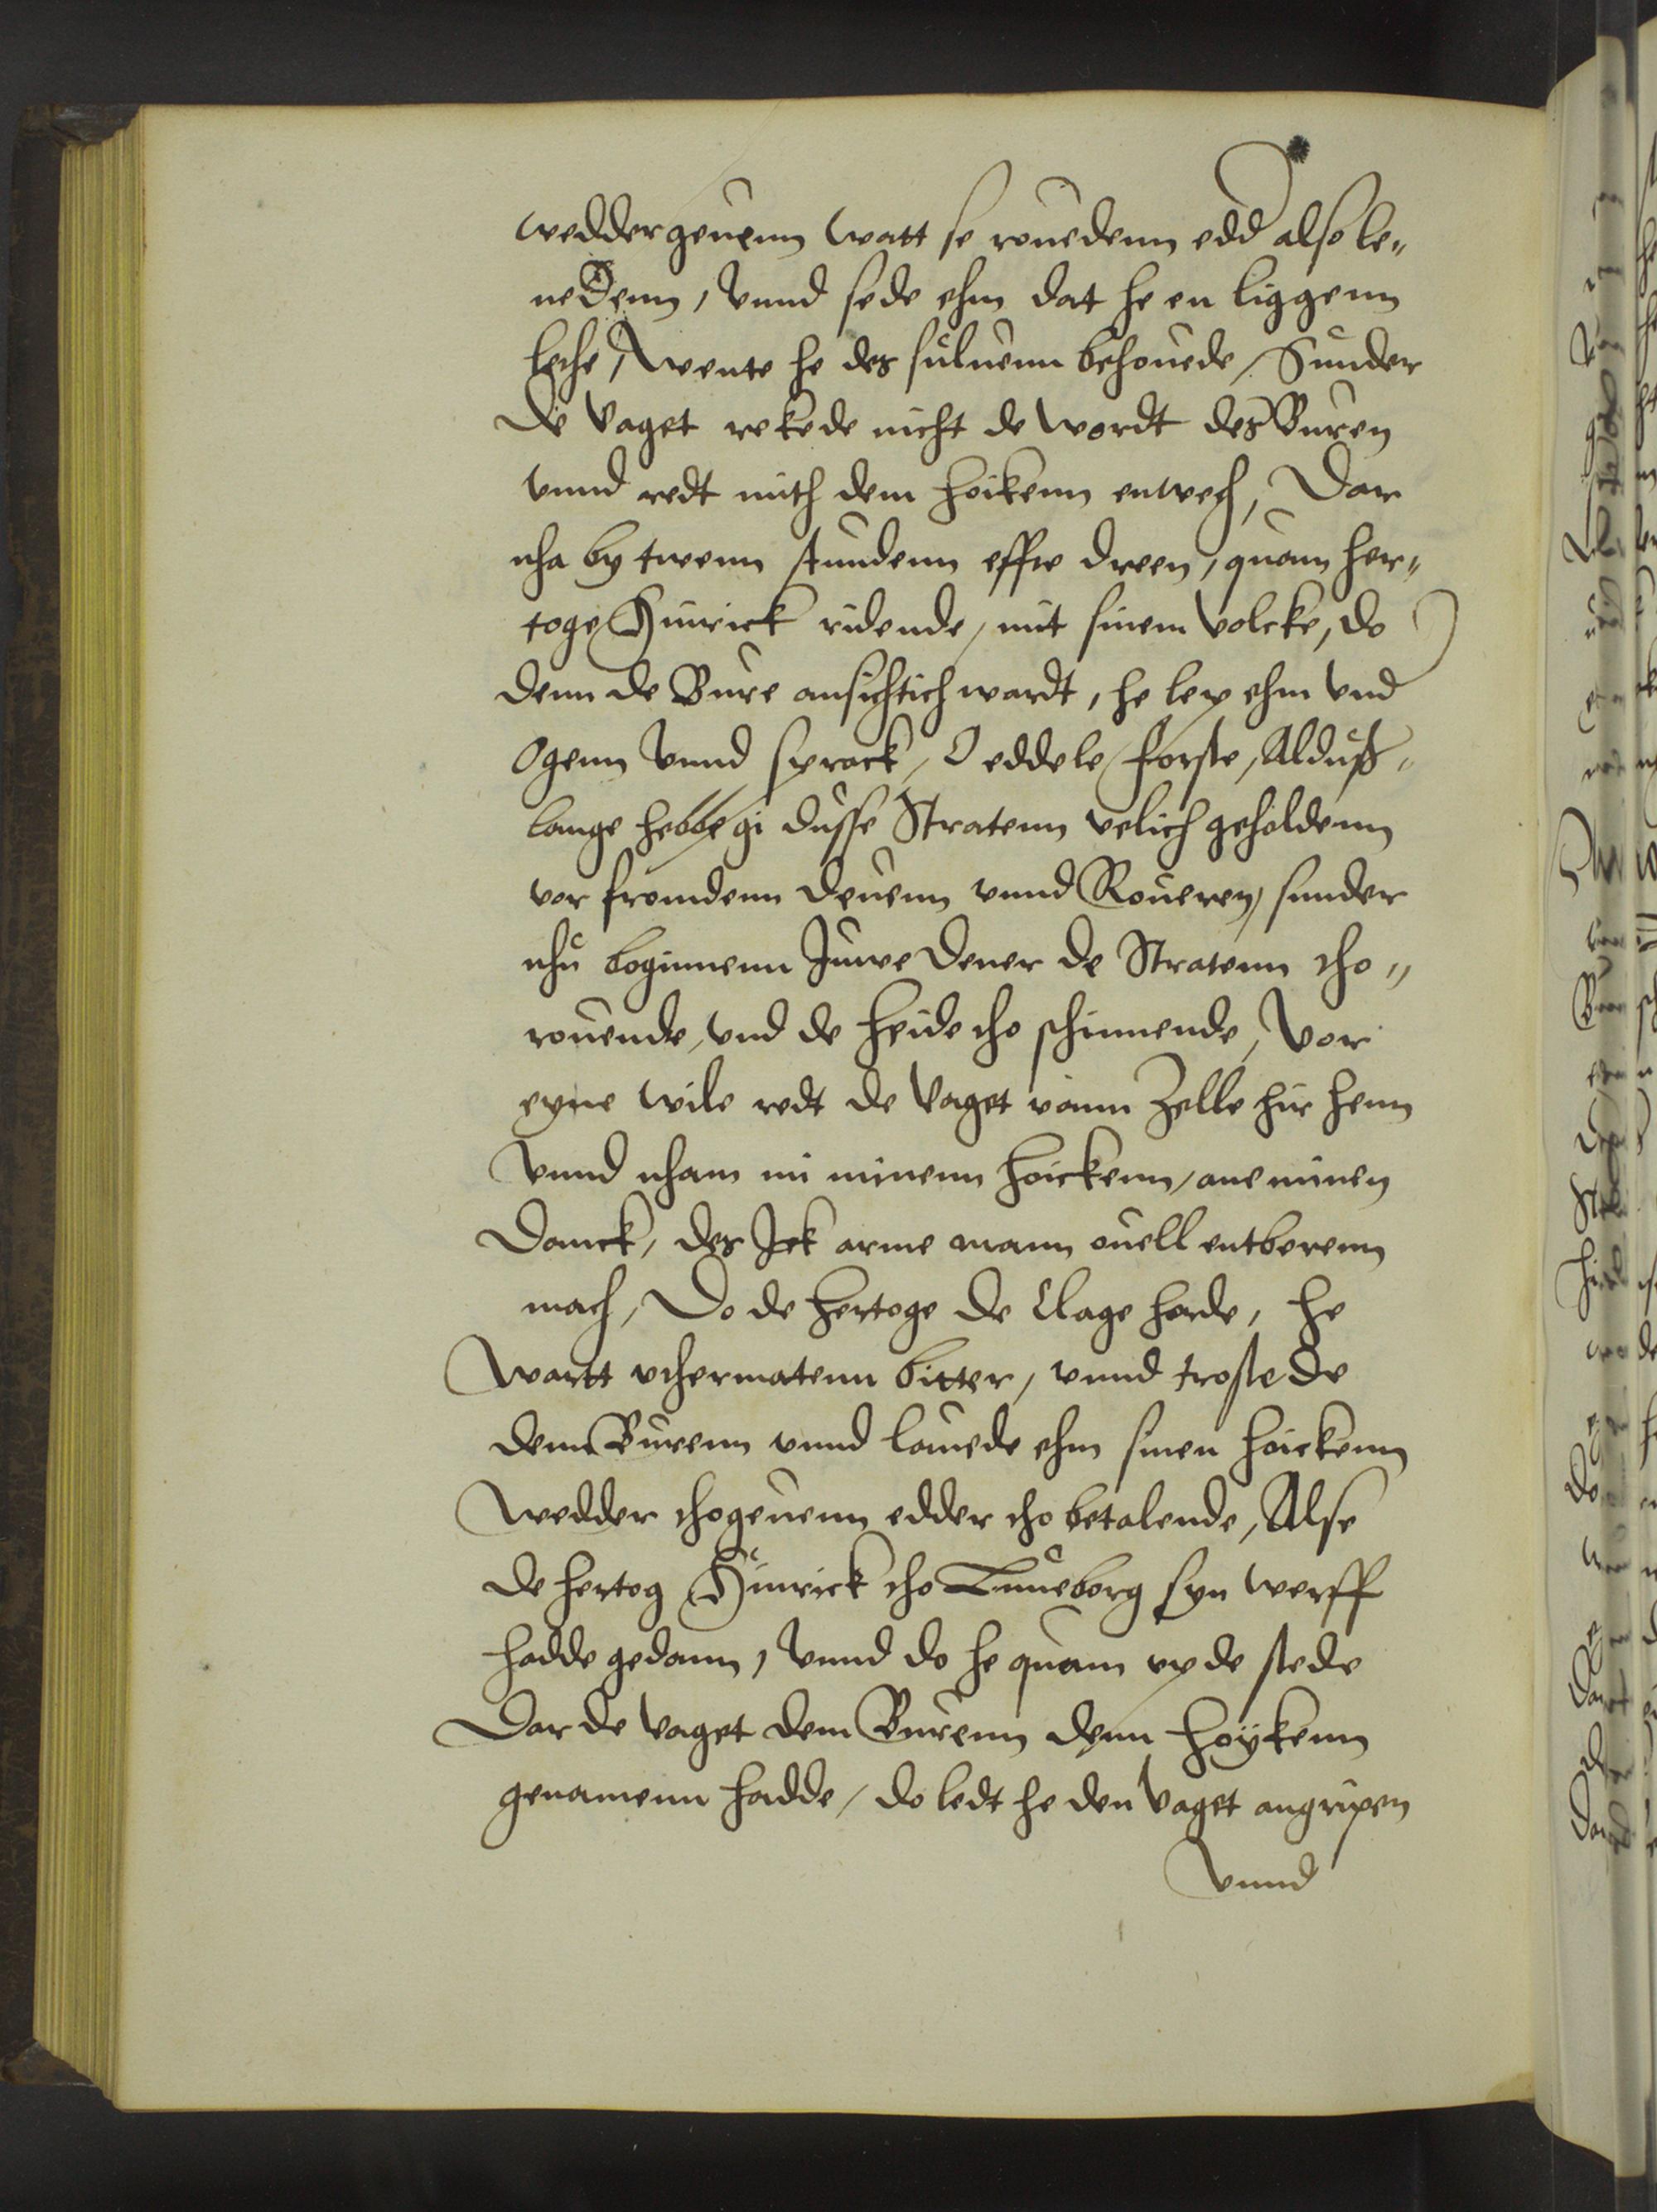 wedder geuenn watt se rouedenn edd also le¬
nedenn, Vnnd sede ehm dat he en liggenn
lethe, Wente he des suluenn behouede, Sunder
de Vaget rekede nicht de wordt des Buren
vnnd redt mith dem hoikenn enwech, Dar
nha by twenn stundenn effte dreen, quam her¬
toge Hinrick ridende, mit sinem Volcke, do
denn de Bure ansichtich wardt, he lep ehm vnd
Ogenn Vnnd sprack, O eddele forste, Alduß
lange hebbe gi dusse Stratenn velich geholdenn
vor fromdenn deuenn vnnd Roueren, sunder
nhu beginnenn Juwe dener de Stratenn tho¬
rouende, vnd de heide tho schinnende, Vor
eyne wile redt de Vaget vann Zelle hir henn
Vnnd nham mi minenn hoickenn, ane minen
Danck, des Ick arme mann ouell entberenn
mach, Do de hertoge de Clage horde, he
Wartt vthermatenn bitter, vnnd trostede
denn Burenn vnnd lauede ehm sinen hoickenn
Wedder thogeuenn edder tho betalende, Alse
de hertog Hinrick tho Luneborg syn werff
hadde gedann, Vnnd do he quam vp de stede
Dar de Vaget dem Burenn denn hoykenn
genamenn hadde, do ledt he den Vaget angripen
Vnnd